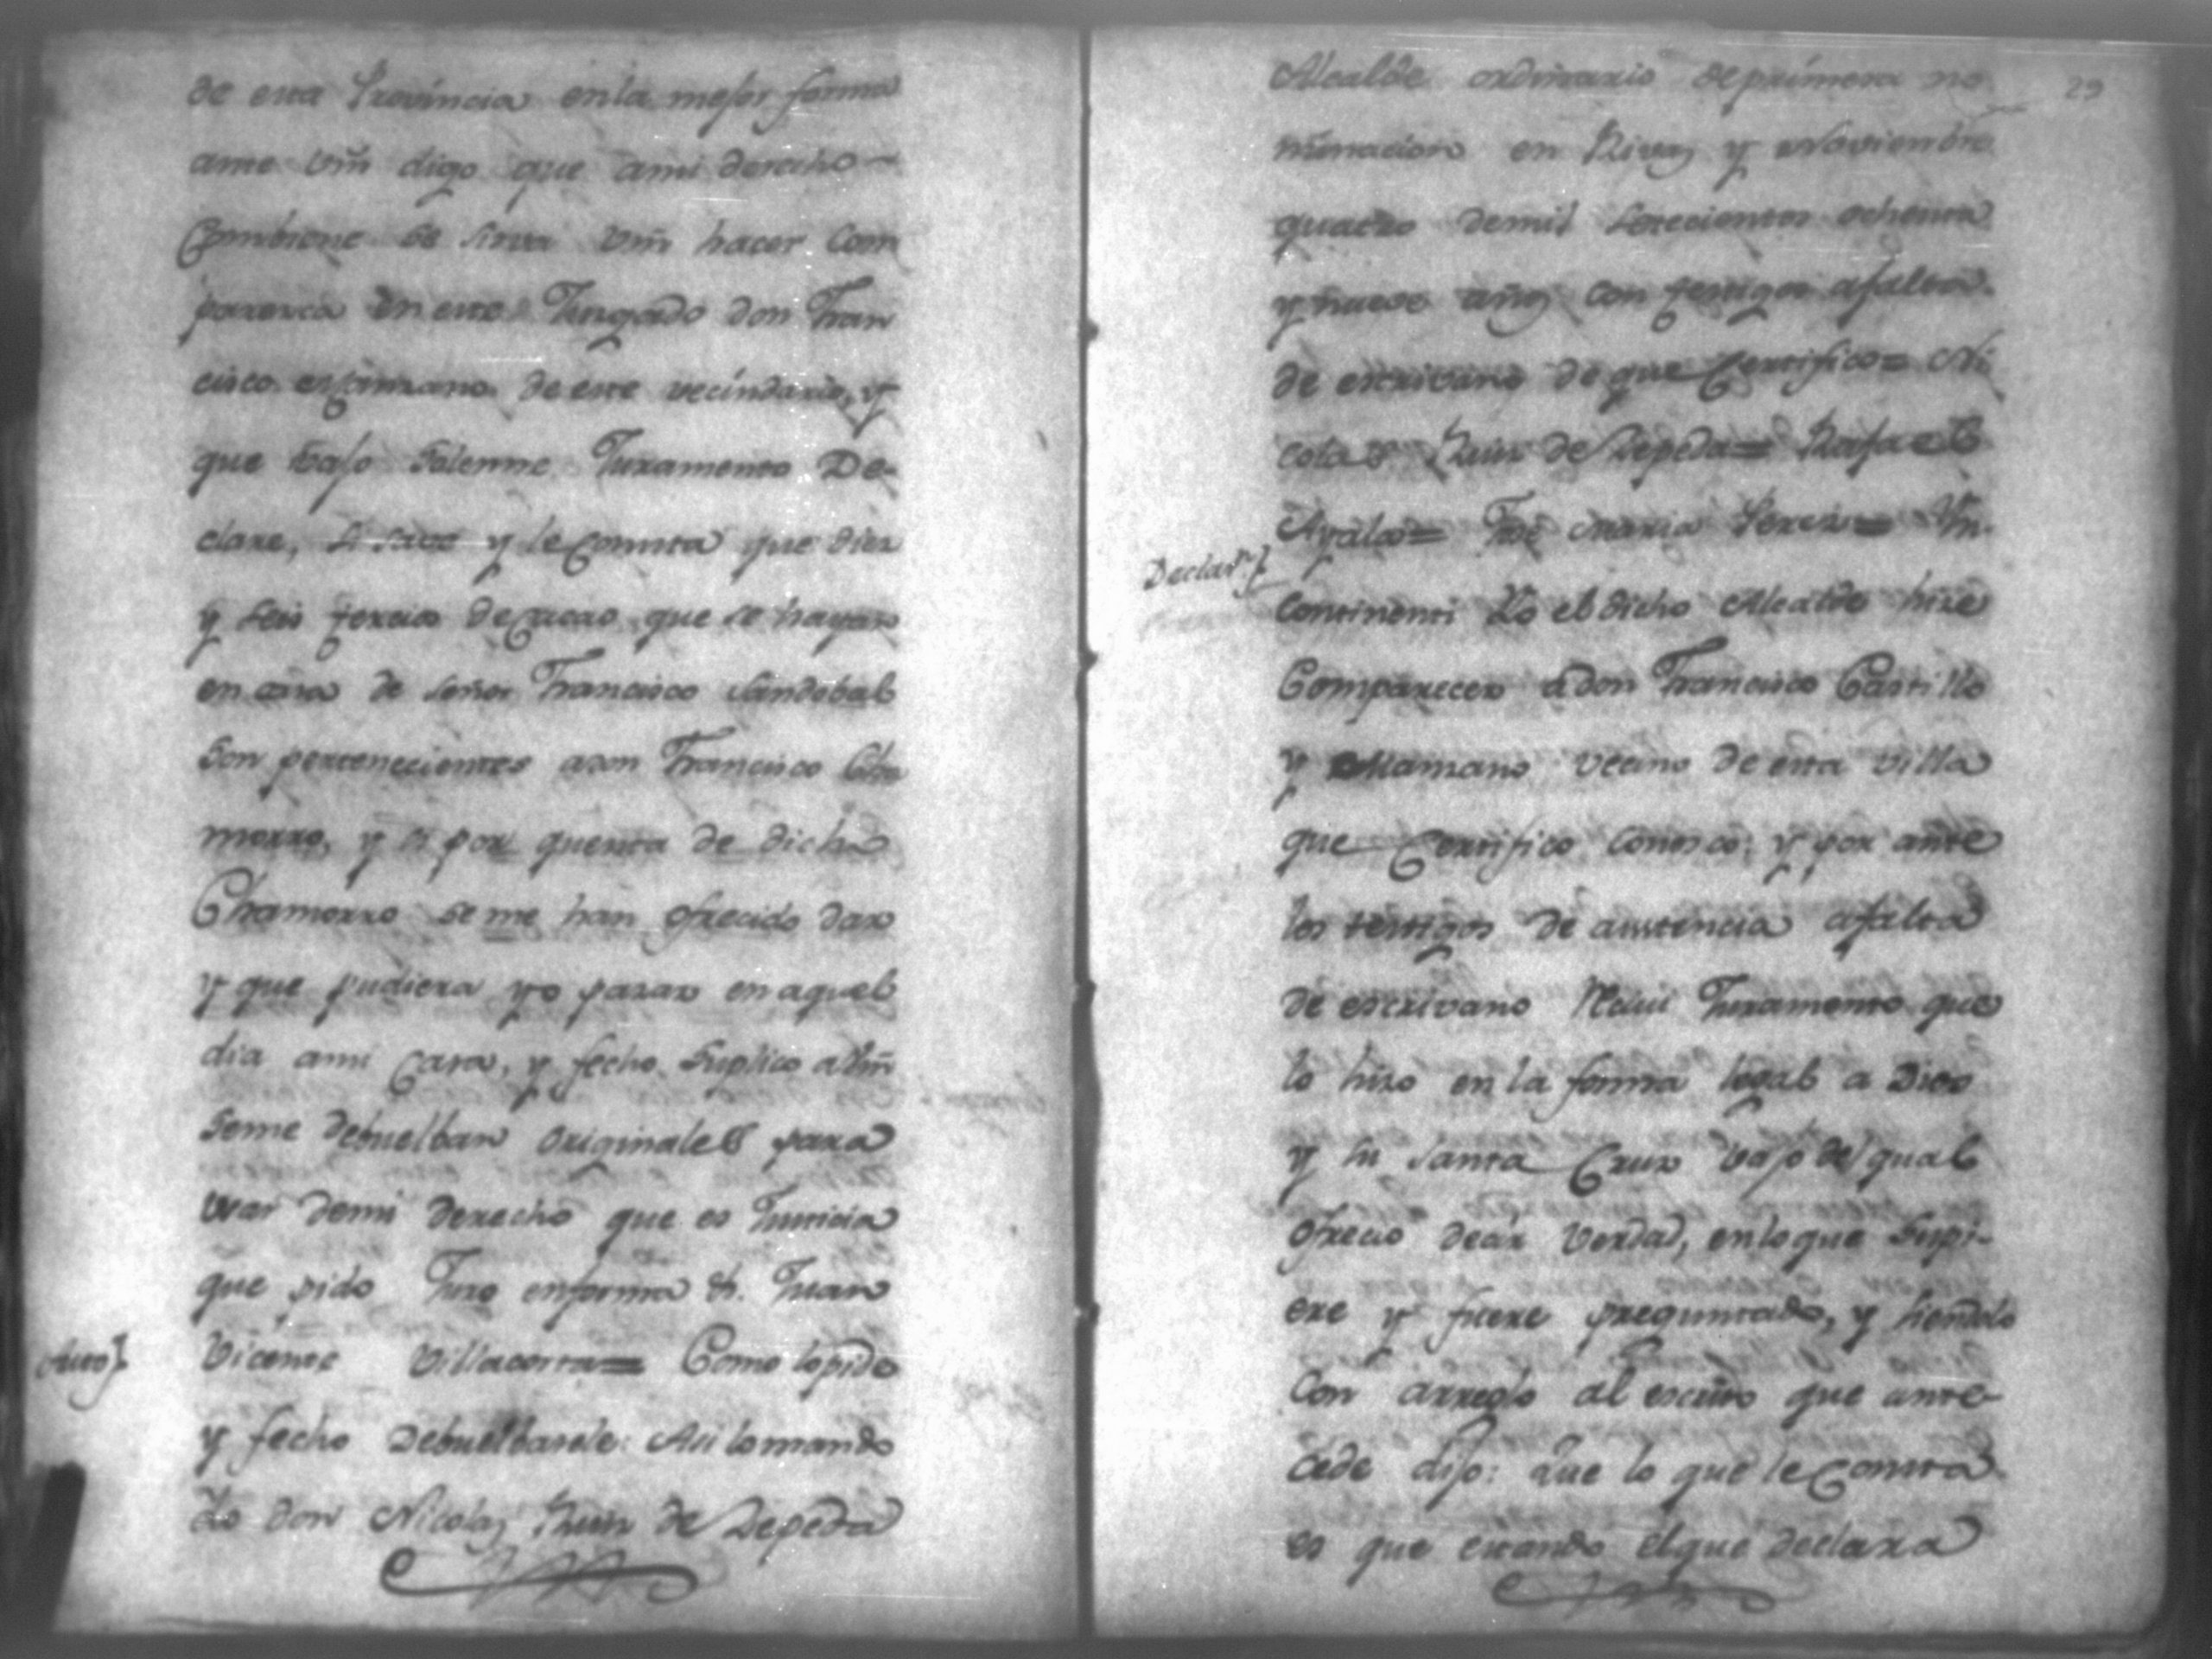 de esta Provincia en la mejor forma
ante Vm̃ digo que ami derecho
Combiene se sirva Vm̃ hacer com
paresca en este Jusgado don Fran
cisco Manzano de este vecindario, y
que bajo Solemne Juramento De-
clare, si save y le Consta que diez
y seis tercios de Cacao que se hayan
en casa de señor Francisco Sandobal
son pertenecientes a don Francisco Cha
morro, y si por quenta de dicho
Chamorro se me han ofrecido dar
y que pudiera yo pasar en aquel
dia ami Casa, y fecho Suplico a Vm̃
se me debuelban originales para
usar demi derecho que es Justicia
que pido Juro enforma &. Juan
Auto} Vicente Villacorta= Como lo pide
y fecho Debuelbasele: Asi lo mando
Yo don Nicolas Ruiz de Zepeda
29
Alcalde ordinario de primera no
minacion en Rivas y Noviembre
quatro demil setecientos ochenta
y nueve años con testigos afalta
de escrivano de que Certifico= Ni
colas Ruiz de Zepeda= Rafael
Ayala= Jose Maria Perez= Yn
Declaron} Continenti Yo el dicho Alcalde hize
Comparecer a don Francisco Castillo
y Manzano vecino de esta villa
que Certifico Conosco; y por ante
los testigos de asistencia afalta
de escrivano Recivi Juramento que
lo hizo en la forma legal a Dios
y su Santa Cruz vajo del qual
ofrecio decir Verdad, en lo que supi-
ere y fuere preguntado, y siendolo
con arreglo al escrito que ante-
cede dijo: Que lo que le Consta
es que cuando el que declara